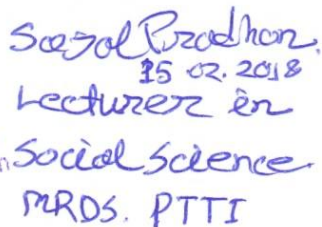 Sajol Pradhan.
15 02. 2018
Lecturer in
Social Science
MRDS. PTTI